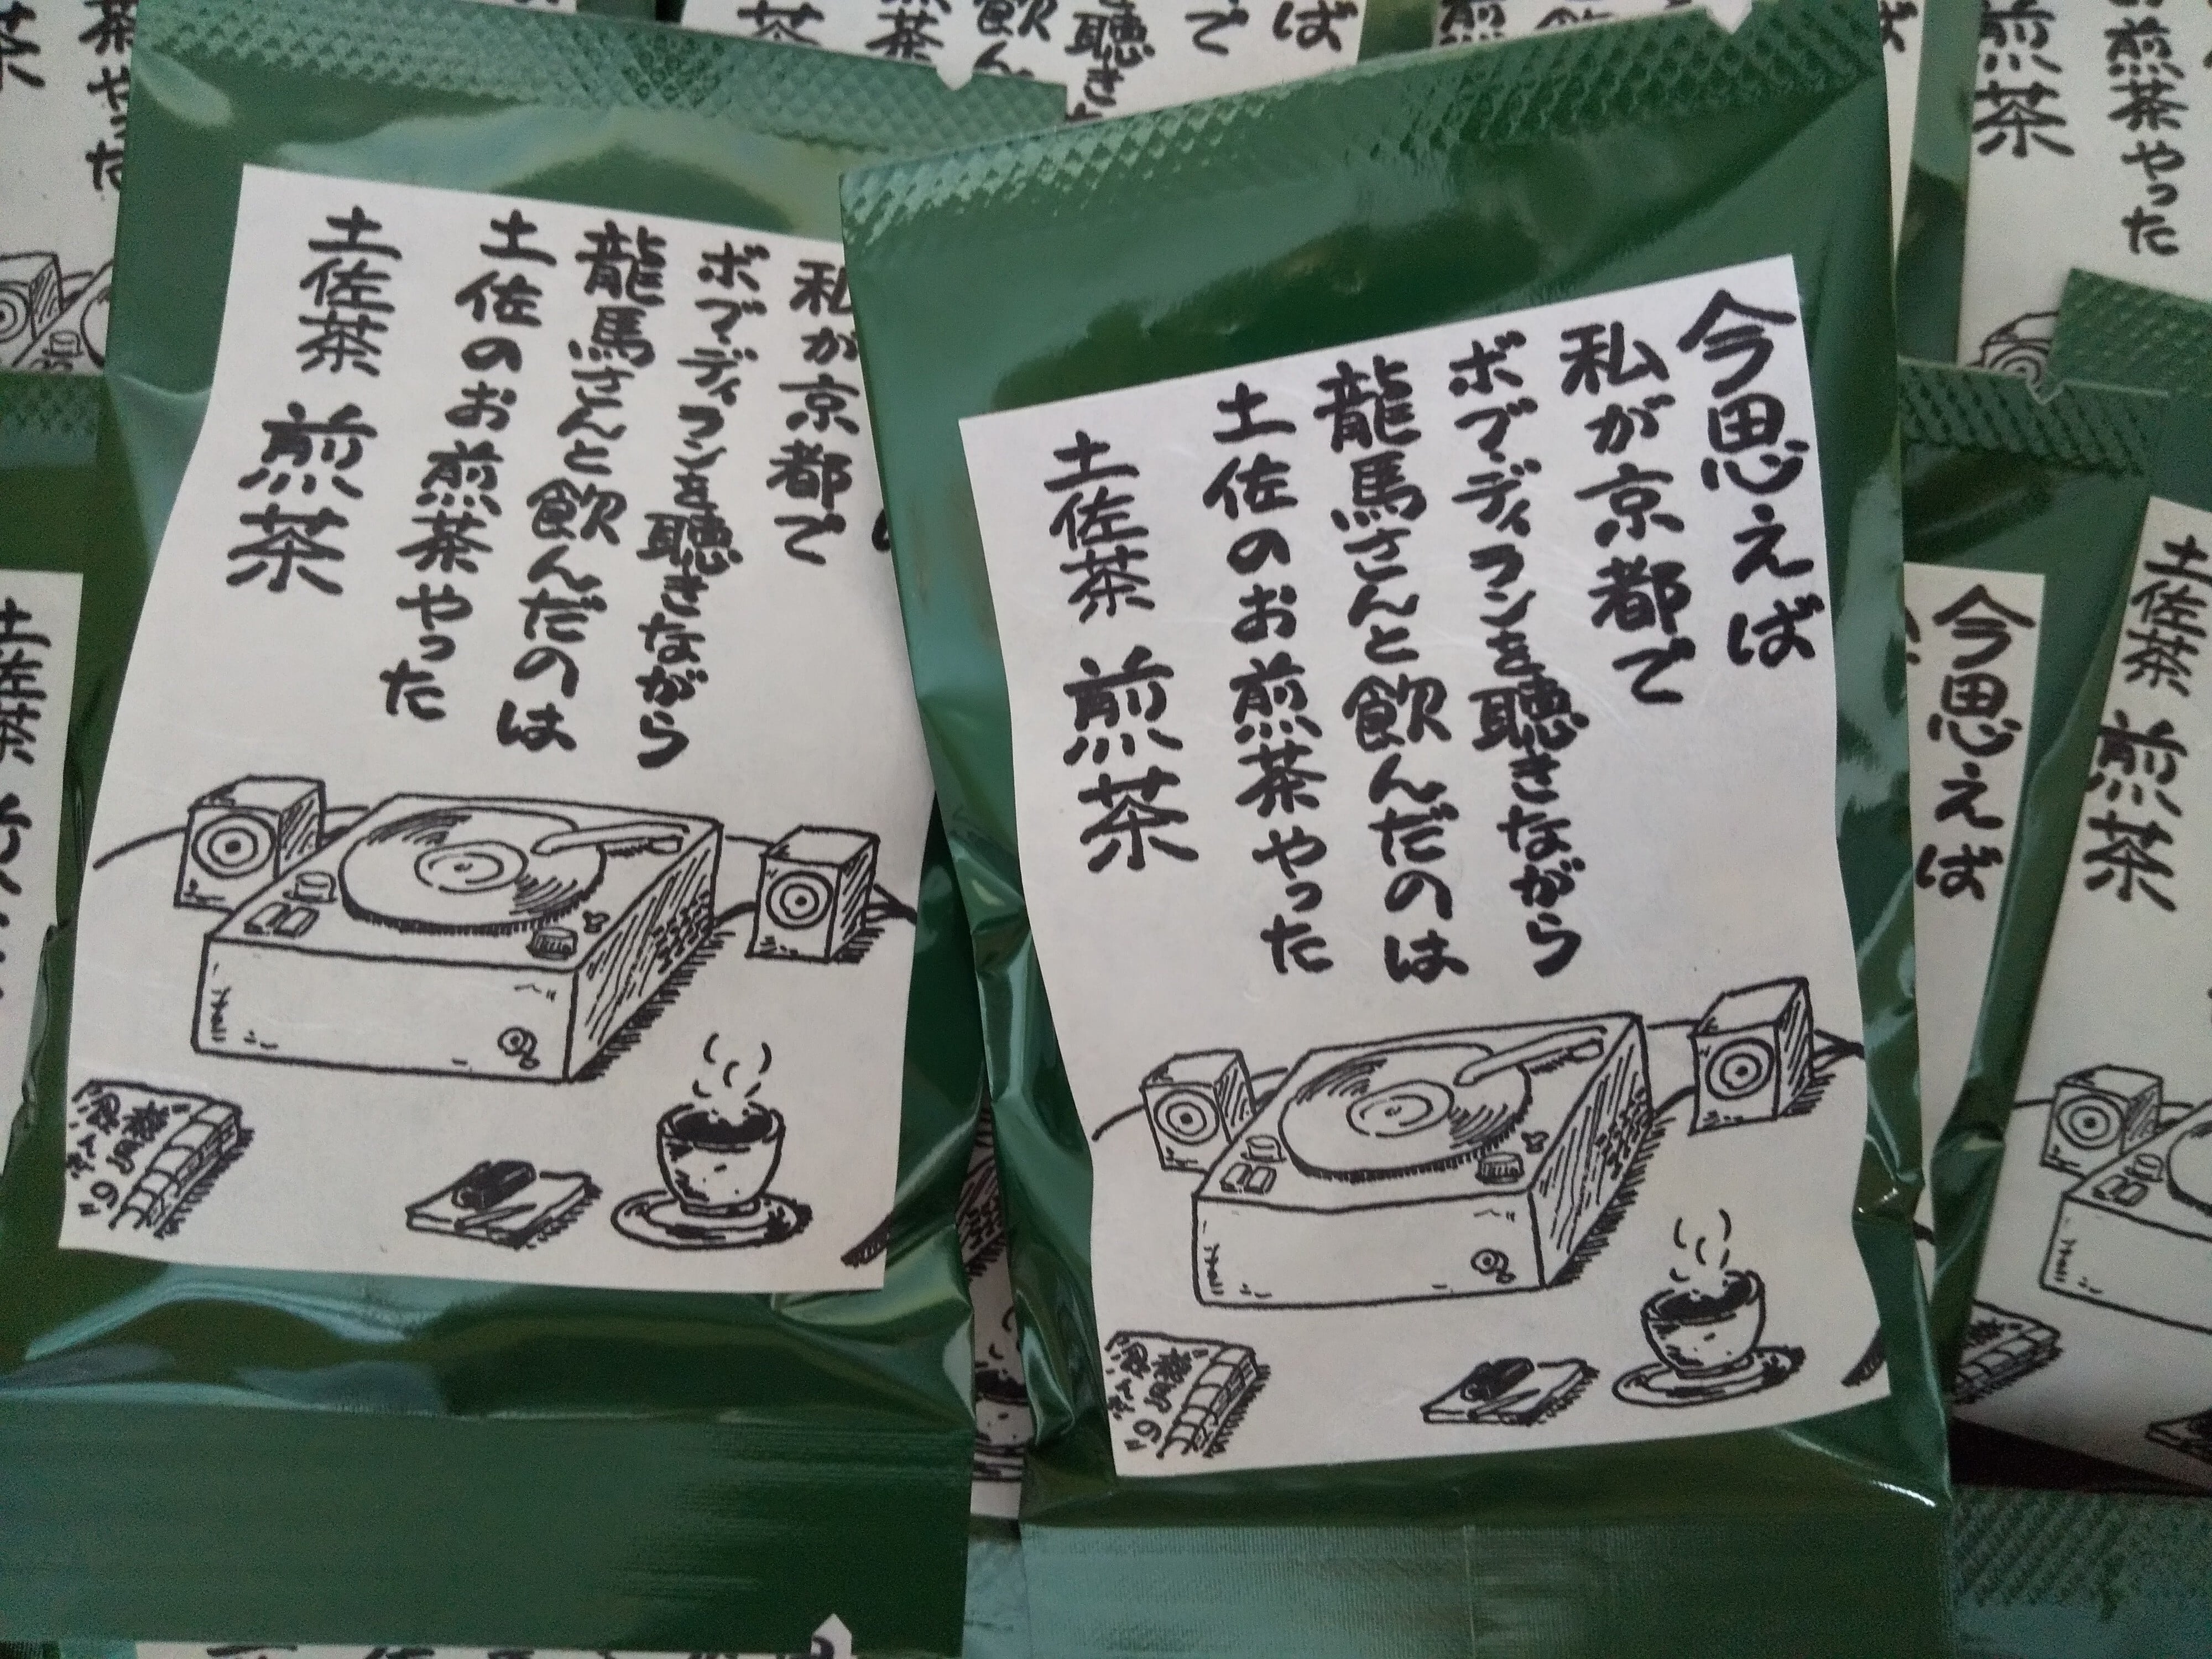 今思えば
私が京都で
ボブディランを聴きながら
龍馬さんと飲んだのは
土佐のお煎茶やった
土佐茶 煎茶
私が京都で
ボブディランを聴きながら
龍馬さんと飲んだのは
土佐のお煎茶やった
土佐茶 煎茶
今思えば
土佐茶 煎茶
煎茶
煎茶やった